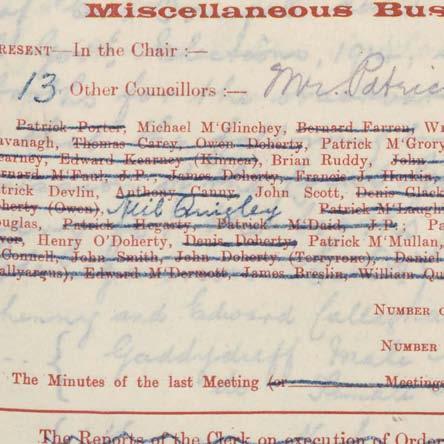 Miscellaneous Bus
RESENT—In the Chair :—
13 Other Councillors :— Mr. Patric
Patrick Porter, Michael M‘Glinchey, Bernard Farren, W
avanagh, Thomas Carey, Owen Doherty, Patrick M‘Grory
earney, Edward Kearney (Kinnea), Brian Ruddy, John
rnard M‘Faul, J.P., James Doherty, Francis J. Harkin,
trick Devlin, Anthony Canny, John Scott, Denis Glack
herty (Owen), Neil Quigley Patrick M‘Laugh
ouglas, Patrick Hegarty, Patrick M‘Daid, J.P., Pa
vor, Henry O’Doherty, Denis Doherty, Patrick M‘Mullan,
‘Connell, John Smith, John Doherty (Terryrone), Daniel
allyargus), Edward M‘Dermott, James Breslin, William Qu
Number o
and Edward
Number
The Minutes of the last Meeting (or Meeting
The Reports of the Clerk on execution of Order